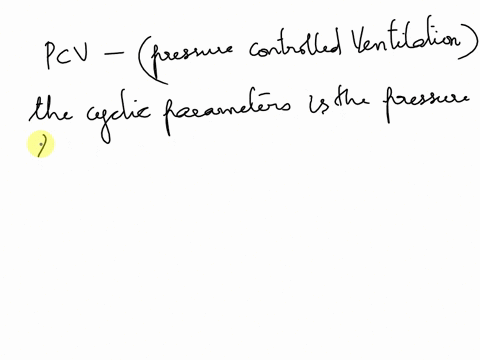 PCV - (pressure controlled Ventilation)
the cyclic parameters is the pressure
;)